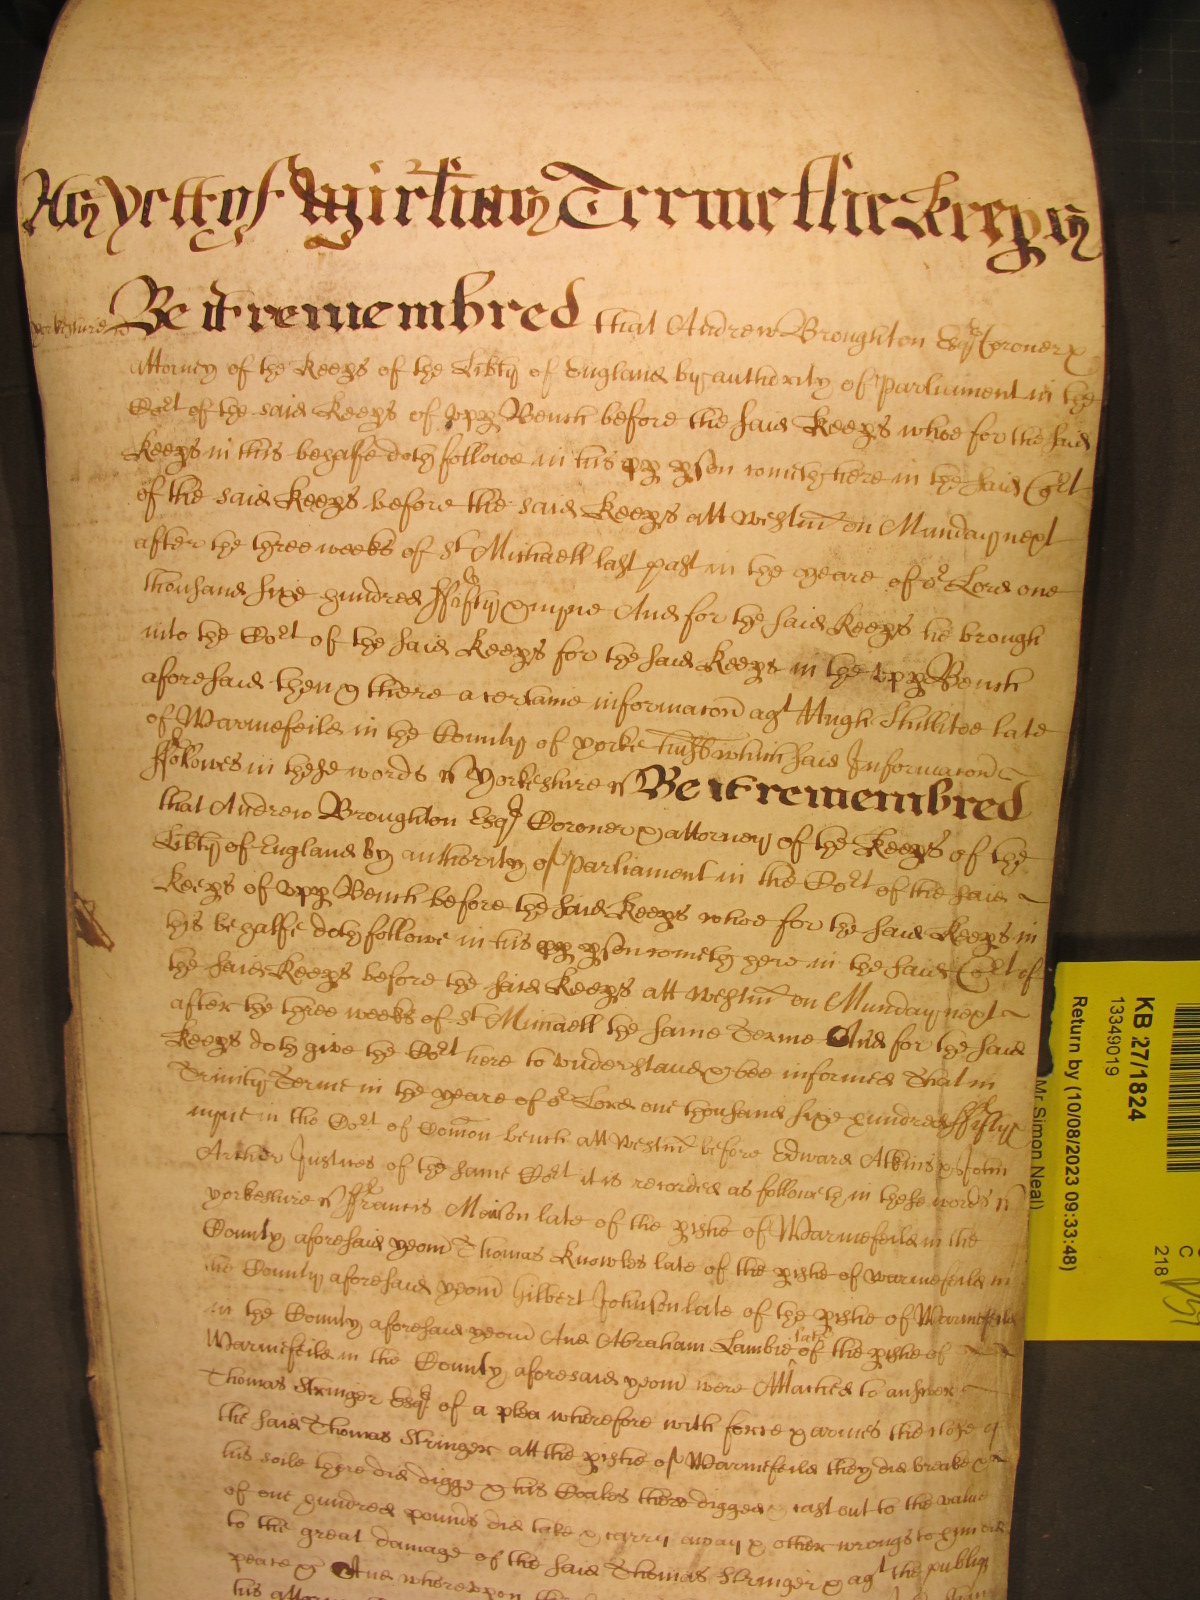 As yett of Mich'mas Terme the Keep's
Yorkeshire ss Be it remembred that Andrew Broughton Esqr Coroner &
attorney of the Keep's of the Lib'ty of England by authority of Parliament in the
Cort of the said Keep's of vpp Bench before the said Keep's whoe for the said
Keep's in this behalfe doth followe in his pp p'son cometh here in the said Cort
of the said Keep's before the said Keep's att Westm' on Munday next
after the three weeks of St Michaell last past in the yeare of or Lord one
thousand sixe hundred ffifty & nyne And for the said Keep's he brough
into the Cort of the said Keep's for the said Keep's in the vpp Bench
aforesaid then & there a certaine informacon agt Hugh Shillitoe late
of Warmefeild in the County of Yorke which said Informacon
ffollowes in these words ss Yorkeshire ss Be it remembred
that Andrew Broughton Esqr Coroner & attorney of the Keep's of the
Lib'ty of England by authority of Parliament in the Cort of the said
Keep's of vpp Bench before the said Keep's whoe for the said Keep's in
this behalfe doth followe in his pp p'son cometh here in the said Cort of
the said Keep's before the said Keep's att Westm' on Munday next
after the three weeks of St Michaell the same Terme And for the said
Keep's doth give the Cort here to vnderstand & bee informed That in
Trinity Terme in the yeare of or Lord one thousand sixe hundred ffifty &
nyne in the Cort of Comon bench att Westm' before Edward Atkins & John
Archer Justices of the same Cort it is recorded as followeth in these words ss
Yorkeshire ss ffrancis Mason late of the p'ishe of Warmefeild in the
County aforesaid yeom' Thomas Knowles late of the p'ishe of Warmefeild in
the County aforesaid yeom' Gilbert Johnson late of the p'ishe of Warmefeild
in the County aforesaid yeom' And Abraham Lambie late of the p'ishe of
Warmefeild in the County aforesaid yeom' were Attached to answer
Thomas Stringer Esqr of a plea wherefore with force & armes the close of
the said Thomas Stringer att the p'ishe of Warmefeild they did breake & in
his soile there did digge & his Coales there digged & cast out to the value
of one hundred pounds did take & carry away & other wrongs to him did
to the great damage of the said Thomas Stringer & agt the publiq
peace & And wherevpon the
his attorney
KB 27/1824
13349019
Return by (10/08/2023 09:33:48)
Mr Simon Neal)
C
218